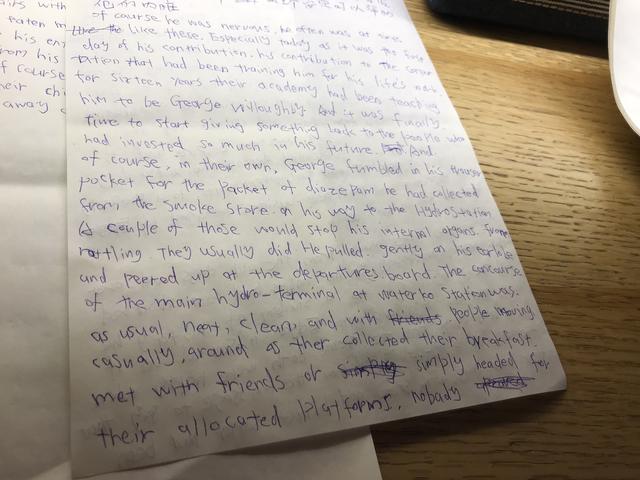 of course he was nervous. he often was at times
like the like these. Especially today as it was the first
day of his contribution. his contribution to the corpor
tation that had been training him for his life's work
for sixteen years their academy had been teaching
him to be George Willoughby. And it was finally
time to start giving something back to the people who
had invested so much in his future. And
of course, in their own, George fumbled in his trouser
pocket for the packet of diazepam he had collected
from the smoke store on his way to the Hydrostation
A couple of those would stop his internal organs from
rattling. They usually did. He pulled gently on his earlobe
and peered up at the departures board. The concourse
of the main hydro-terminal at waterko station was.
as usual, neat, clean, and with friends people moving
casually, around as ther collected their breakfast.
met with friends or simply simply headed for
their allocated platforms, nobody
with
eaten
his
from his
f course
heir chi
away